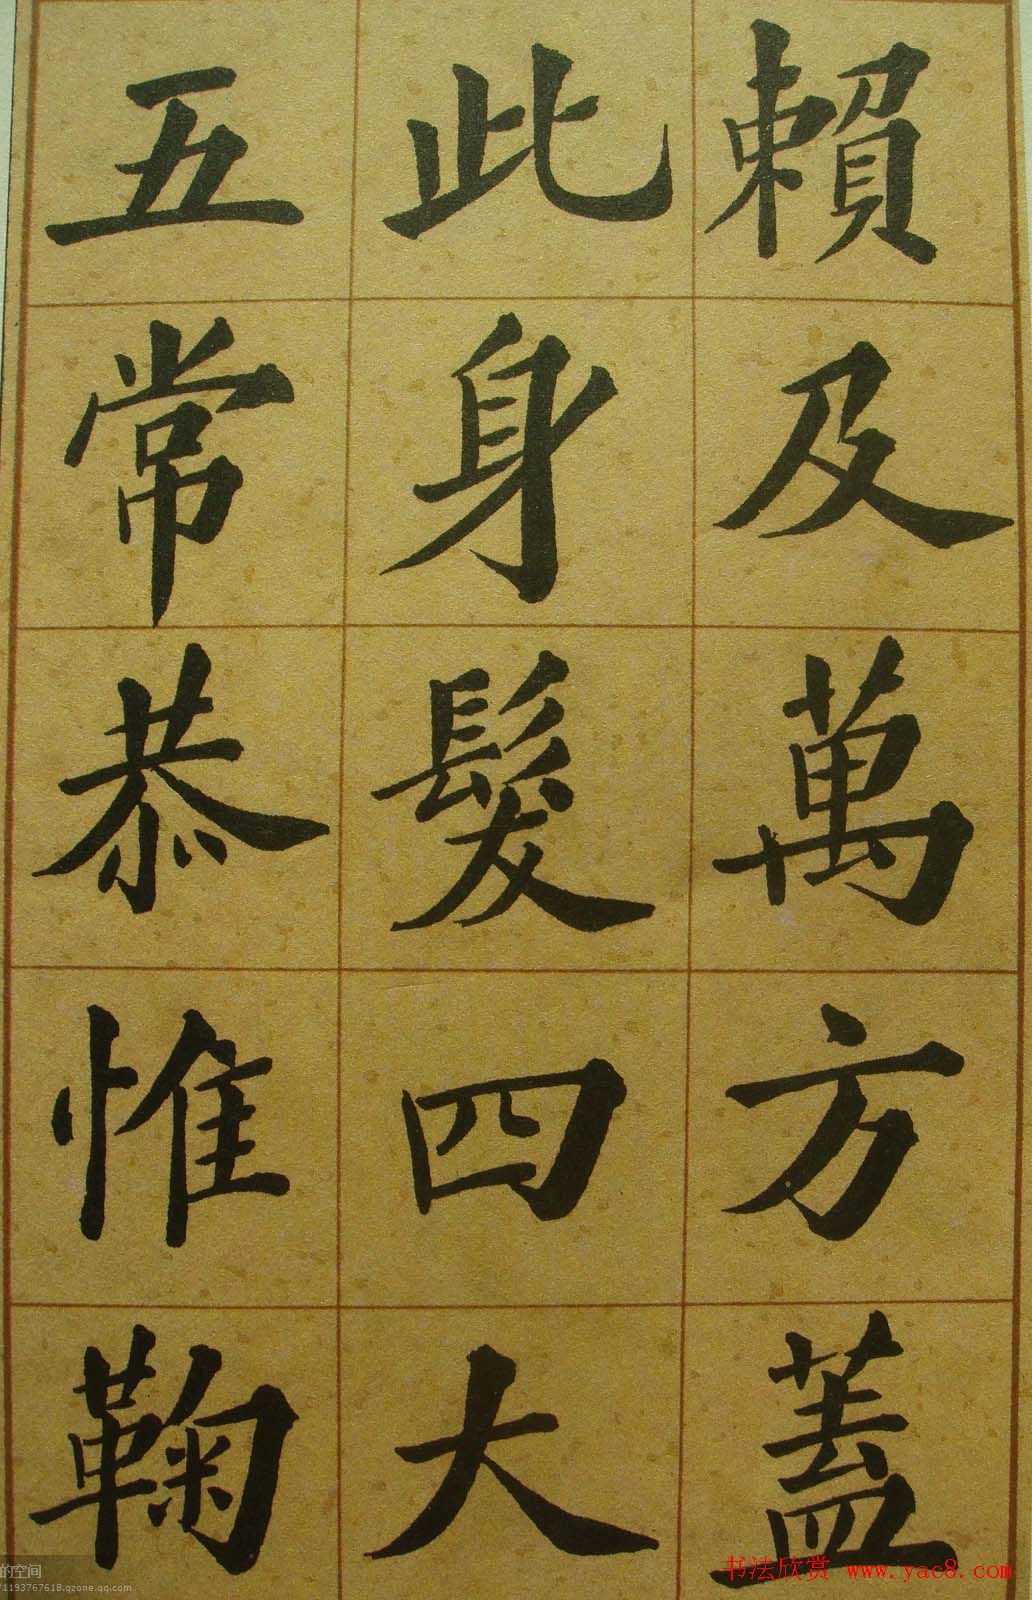 賴及萬方蓋
此身髮四大
五常恭惟鞠
书法欣赏 www.yac8.com
的空间
1193767618.qzone.qq.com